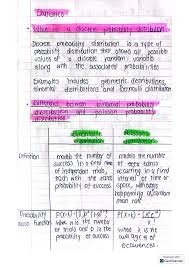 Statistics
• What is a discrete probability distribution
Discrete probability distribution is a type of
probability distribution that shows all possible
values of a discrete random variable
along with the associated probabilities
Examples includes geometric distributions,
binomial distributions and Bernoulli distribution
• Difference between binomial probability
distribution and poisson probability
distribution
Binomial distribution
Poisson distribution
Definition
models the number of
success in a fixed
of independent trials,
each with the same
probability of success
models the number
of events
occurring in a fixed
interval of time or
space, with events
happening at
constant mean
rate
Probability
mass function
where n is the number
of trials and p is the
probability of success
where λ is the
average rate of
occurrences
CamScanner